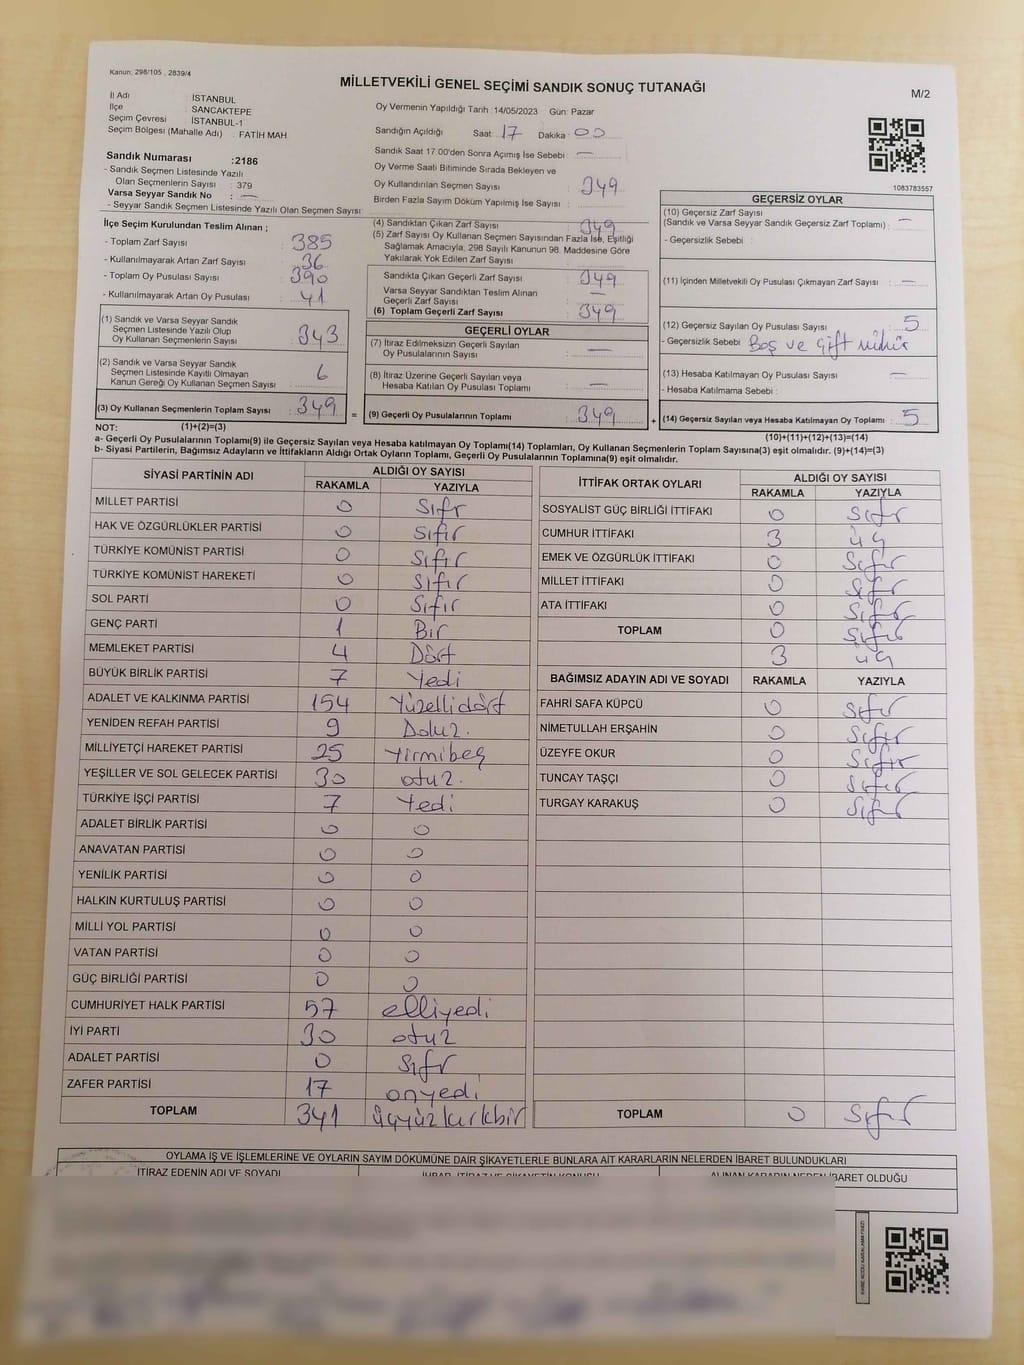 Kanun: 298/105 , 2839/4
MİLLETVEKİLİ GENEL SEÇİMİ SANDIK SONUÇ TUTANAĞI
M/2
İl Adı : İSTANBUL
İlçe : SANCAKTEPE
Seçim Çevresi : İSTANBUL-1
Seçim Bölgesi (Mahalle Adı) : FATİH MAH
Sandık Numarası :2186
- Sandık Seçmen Listesinde Yazılı
Olan Seçmenlerin Sayısı : 379
Varsa Seyyar Sandık No : —
- Seyyar Sandık Seçmen Listesinde Yazılı Olan Seçmen Sayısı
Oy Vermenin Yapıldığı Tarih :14/05/2023 Gün: Pazar
Sandığın Açıldığı Saat 17 Dakika 00
Sandık Saat 17.00'den Sonra Açımış İse Sebebi : —
Oy Verme Saati Bitiminde Sırada Bekleyen ve
Oy Kullandırılan Seçmen Sayısı : 349
Birden Fazla Sayım Döküm Yapılmış İse Sayısı :
1083783557
İlçe Seçim Kurulundan Teslim Alınan ;
- Toplam Zarf Sayısı : 385
- Kullanılmayarak Artan Zarf Sayısı : 36
- Toplam Oy Pusulası Sayısı : 390
- Kullanılmayarak Artan Oy Pusulası : 41
(1) Sandık ve Varsa Seyyar Sandık
Seçmen Listesinde Yazılı Olup
Oy Kullanan Seçmenlerin Sayısı : 343
(2) Sandık ve Varsa Seyyar Sandık
Seçmen Listesinde Kayıtlı Olmayan
Kanun Gereği Oy Kullanan Seçmen Sayısı : 6
(3) Oy Kullanan Seçmenlerin Toplam Sayısı : 349
(4) Sandıktan Çıkan Zarf Sayısı : 349
(5) Zarf Sayısı Oy Kullanan Seçmen Sayısından Fazla İse, Eşitliği
Sağlamak Amacıyla, 298 Sayılı Kanunun 98. Maddesine Göre
Yakılarak Yok Edilen Zarf Sayısı :
Sandıkta Çıkan Geçerli Zarf Sayısı : 349
Varsa Seyyar Sandıktan Teslim Alınan
Geçerli Zarf Sayısı : —
(6) Toplam Geçerli Zarf Sayısı : 349
GEÇERLİ OYLAR
(7) İtiraz Edilmeksizin Geçerli Sayılan
Oy Pusulalarının Sayısı : —
(8) İtiraz Üzerine Geçerli Sayılan veya
Hesaba Katılan Oy Pusulası Toplamı : —
= (9) Geçerli Oy Pusulalarının Toplamı : 349 +
GEÇERSİZ OYLAR
(10) Geçersiz Zarf Sayısı
(Sandık ve Varsa Seyyar Sandık Geçersiz Zarf Toplamı) : —
- Geçersizlik Sebebi :
(11) İçinden Milletvekili Oy Pusulası Çıkmayan Zarf Sayısı : —
(12) Geçersiz Sayılan Oy Pusulası Sayısı : 5
- Geçersizlik Sebebi : Boş ve Çift mühür
(13) Hesaba Katılmayan Oy Pusulası Sayısı : —
- Hesaba Katılmama Sebebi :
(14) Geçersiz Sayılan veya Hesaba Katılmayan Oy Toplamı : 5
NOT: (1)+(2)=(3) (10)+(11)+(12)+(13)=(14)
a- Geçerli Oy Pusulalarının Toplamı(9) ile Geçersiz Sayılan veya Hesaba katılmayan Oy Toplam(14) Toplamları, Oy Kullanan Seçmenlerin Toplam Sayısına(3) eşit olmalıdır. (9)+(14)=(3)
b- Siyasi Partilerin, Bağımsız Adayların ve İttifakların Aldığı Ortak Oyların Toplamı, Geçerli Oy Pusulalarının Toplamına(9) eşit olmalıdır.
SİYASİ PARTİNİN ADI ALDIĞI OY SAYISI
RAKAMLA YAZIYLA
MİLLET PARTİSİ 0 Sıfır
HAK VE ÖZGÜRLÜKLER PARTİSİ 0 Sıfır
TÜRKİYE KOMÜNİST PARTİSİ 0 Sıfır
TÜRKİYE KOMÜNİST HAREKETİ 0 Sıfır
SOL PARTİ 0 Sıfır
GENÇ PARTİ 1 Bir
MEMLEKET PARTİSİ 4 Dört
BÜYÜK BİRLİK PARTİSİ 7 Yedi
ADALET VE KALKINMA PARTİSİ 154 Yüzellidört
YENİDEN REFAH PARTİSİ 9 Dokuz.
MİLLİYETÇİ HAREKET PARTİSİ 25 Yirmibeş
YEŞİLLER VE SOL GELECEK PARTİSİ 30 otuz.
TÜRKİYE İŞÇİ PARTİSİ 7 Yedi
ADALET BİRLİK PARTİSİ 0 0
ANAVATAN PARTİSİ 0 0
YENİLİK PARTİSİ 0 0
HALKIN KURTULUŞ PARTİSİ 0 0
MİLLİ YOL PARTİSİ 0 0
VATAN PARTİSİ 0 0
GÜÇ BİRLİĞİ PARTİSİ 0 0
CUMHURİYET HALK PARTİSİ 57 elliyedi
İYİ PARTİ 30 otuz
ADALET PARTİSİ 0 Sıfır
ZAFER PARTİSİ 17 onyedi
TOPLAM 341 Üçyüzkırkbir
İTTİFAK ORTAK OYLARI ALDIĞI OY SAYISI
RAKAMLA YAZIYLA
SOSYALİST GÜÇ BİRLİĞİ İTTİFAKI 0 Sıfır
CUMHUR İTTİFAKI 3 üç
EMEK VE ÖZGÜRLÜK İTTİFAKI 0 Sıfır
MİLLET İTTİFAKI 0 Sıfır
ATA İTTİFAKI 0 Sıfır
TOPLAM 0 Sıfır
3 üç
BAĞIMSIZ ADAYIN ADI VE SOYADI RAKAMLA YAZIYLA
FAHRİ SAFA KÜPCÜ 0 Sıfır
NİMETULLAH ERŞAHİN 0 Sıfır
ÜZEYFE OKUR 0 Sıfır
TUNCAY TAŞÇI 0 Sıfır
TURGAY KARAKUŞ 0 Sıfır
TOPLAM 0 Sıfır
OYLAMA İŞ VE İŞLEMLERİNE VE OYLARIN SAYIM DÖKÜMÜNE DAİR ŞİKAYETLERLE BUNLARA AİT KARARLARIN NELERDEN İBARET BULUNDUKLARI
İTİRAZ EDENİN ADI VE SOYADI
İBARET OLDUĞU